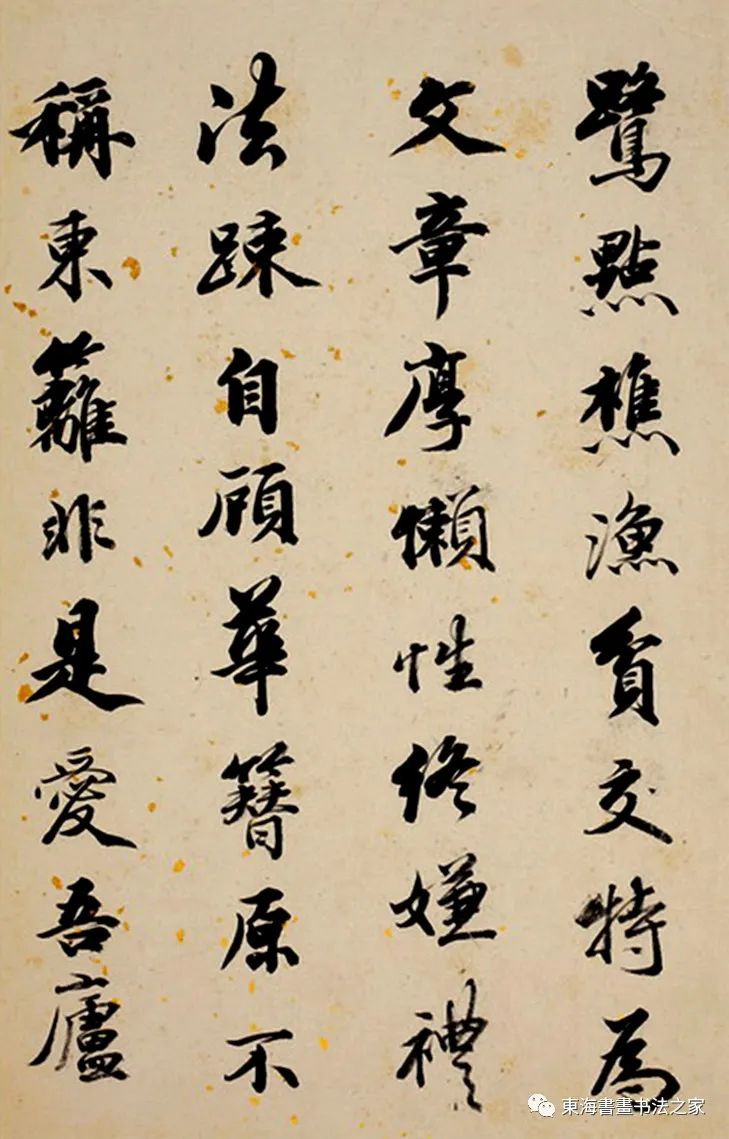 鷺點樵漁貧交特為
文章厚懶性終嫌禮
法踈自顧華簪原不
稱東籬非是愛吾廬
東海書畫书法之家